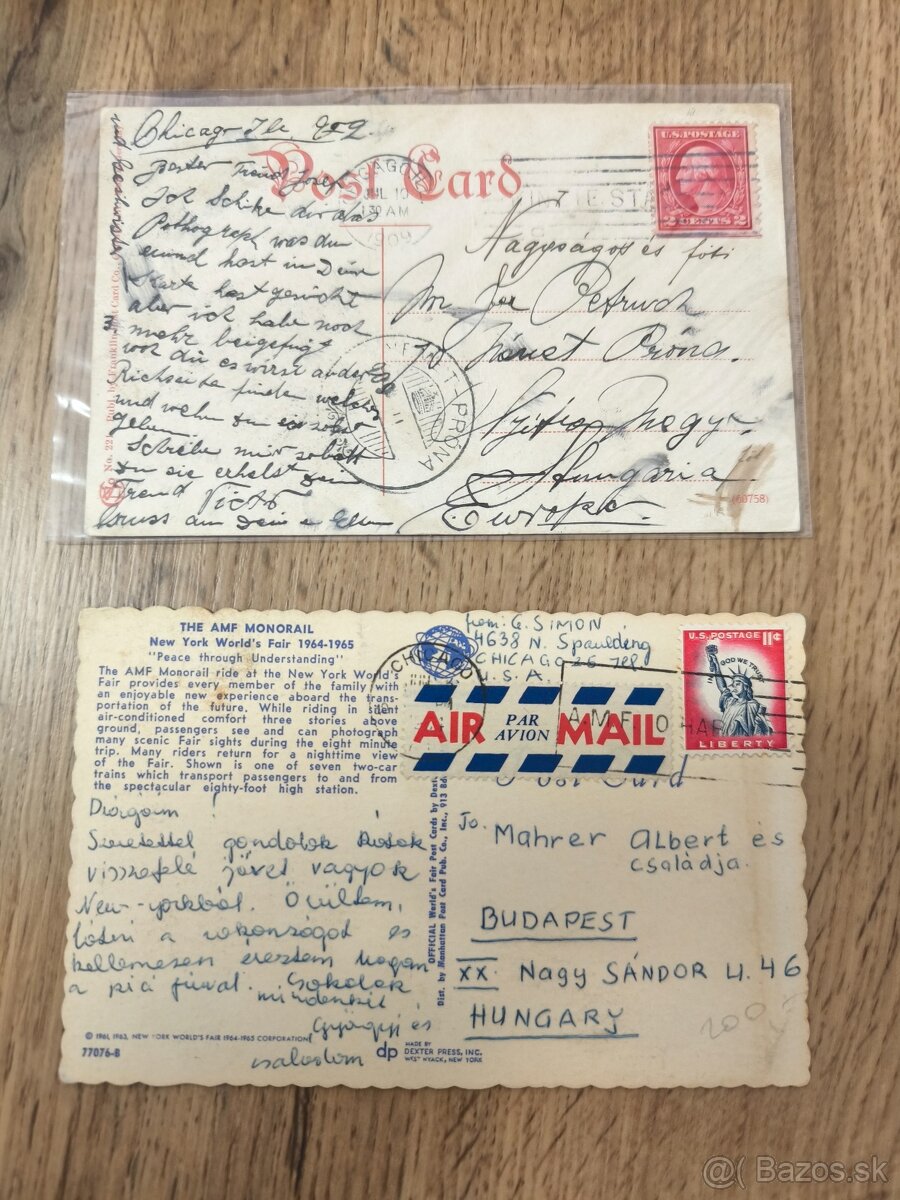 Chicago Ill. 909.
Post Card
CHICAGO
JUL 10
130 AM
1909
U.S. POSTAGE
2 CENTS 2
Ich Schike dir das
Pothograph was du
einmal hast in Deine
Karte hast
aber ich habe noch
mehr beigefügt
und wehn du
gehen
Schreibe mir
du sie erhelst dein
Freund
Gruss an Deine Eltern
Nagyságos és
Mr Joe Petruch
Német Próna.
Nyitra Megye.
Hungaria
Europe.
PRÓNA
(60758)
THE AMF MONORAIL
New York World's Fair 1964-1965
"Peace through Understanding"
The AMF Monorail ride at the New York World's
Fair provides every member of the family with
an enjoyable new experience aboard the trans-
portation of the future. While riding in silent
air-conditioned comfort three stories above
ground, passengers see and can photograph
many scenic Fair sights during the eight minute
trip. Many riders return for a nighttime view
of the Fair. Shown is one of seven two-car
trains which transport passengers to and from
the spectacular eighty-foot high station.
Szeretettel gondolok Rátok
visszafelé jövet vagyok
New-yorkból. Örültem,
látni a rokonságot és
kellemesen éreztem magam
a pici fiúval. Csokolok
mindenkit
Györgyi és
családom
© 1961, 1963, NEW YORK WORLD'S FAIR 1964-1965 CORPORATION
77076-B
dp
MADE BY
DEXTER PRESS, INC.
WEST NYACK, NEW YORK
OFFICIAL World's Fair Post Cards by
Dist. by Manhattan Post Card Pub. Co., Inc., 913
from: G. SIMON
4638 N. Spaulding
CHICAGO 25 Ill
U.S.A.
CHICAGO
AIR PAR AVION MAIL
U.S. POSTAGE 11¢
IN GOD WE TRUST
LIBERTY
Post Card
To. Mahrer Albert és
családja.
BUDAPEST
XX. Nagy SÁNDOR U. 46
HUNGARY
@( Bazos.sk